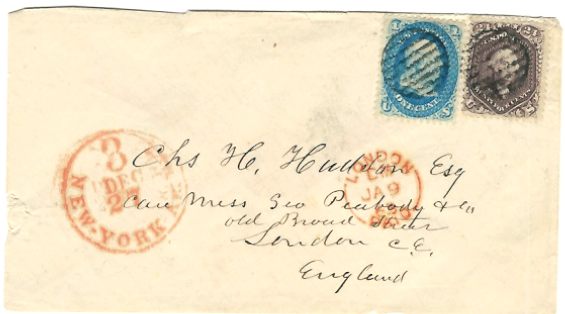 ONE CENT
24
24
8
DEC
NEW-YORK
LONDON
JA 9
Chs H. Hudson Esq
Care Mess Geo Peabody & Co
old Broad Street
London E.C.
England